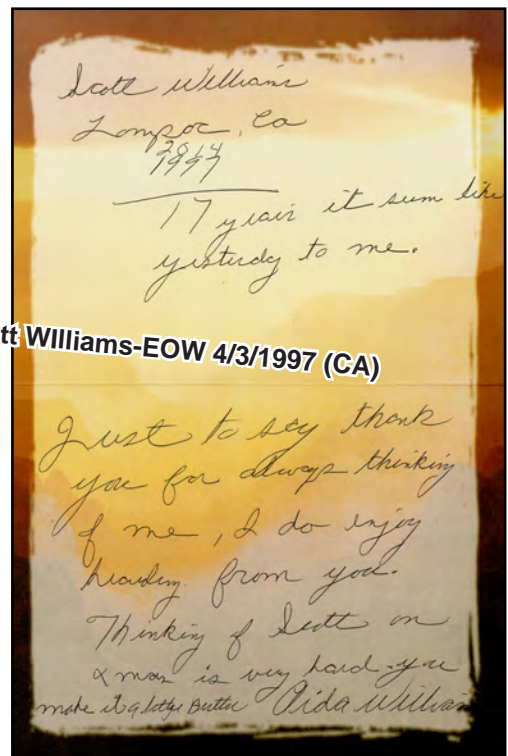 Scott Williams
Lompoc, Ca
2014
1997
17 years it sum like
yesturdy to me.
tt WIlliams-EOW 4/3/1997 (CA)
Just to say thank
you for always thinking
of me, I do enjoy
hearding from you.
Thinking of Scott on
Xmas is very hard. you
make it a lottge Butter Aida Williams